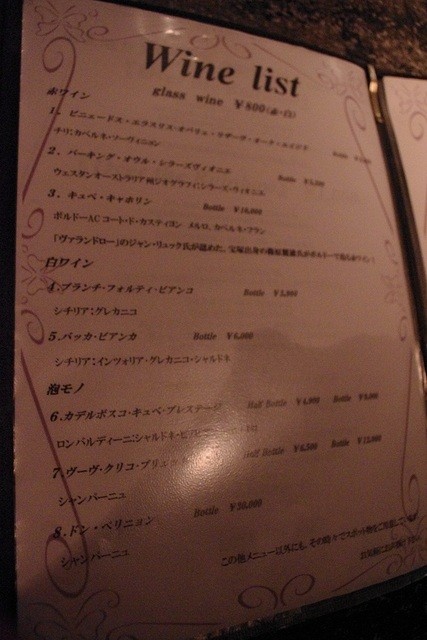 Wine list
glass wine ￥800(赤・白)
赤ワイン
1. ビニェードス・エラスリス・オバリェ・リザーヴ・オーク・エイジド Bottle
チリ;カベルネ・ソーヴィニヨン
2. バーキング・オウル・シラーズヴィオニエ Bottle
ウェスタンオーストラリア州ジオグラフィ;シラーズ・ヴィオニエ
3. キュベ・キャホリン Bottle ￥16,000
ボルドーACコート・ド・カスティヨン メルロ、カベルネ・フラン
「ヴァランドロー」のジャン・リュック氏が認めた、宝塚出身の篠原麗雄氏がボルドーで造る赤ワイン!
白ワイン
4.ブランチ・フォルティ・ビアンコ Bottle
シチリア;グレカニコ
5.バッカ・ビアンカ Bottle ￥6,000
シチリア;インツォリア・グレカニコ・シャルドネ
泡モノ
6.カデルボスコ・キュベ・プレステージ Half Bottle ￥4,900 Bottle
ロンバルディーニ;シャルドネ・ピノ
7.ヴーヴ・クリコ・ブリュット Half Bottle ￥6,500 Bottle
シャンパーニュ
8.ドン・ペリニヨン Bottle
シャンパーニュ
この他メニュー以外にも、その時々でスポット物をご用意しています。
お気軽にお声掛け下さい。